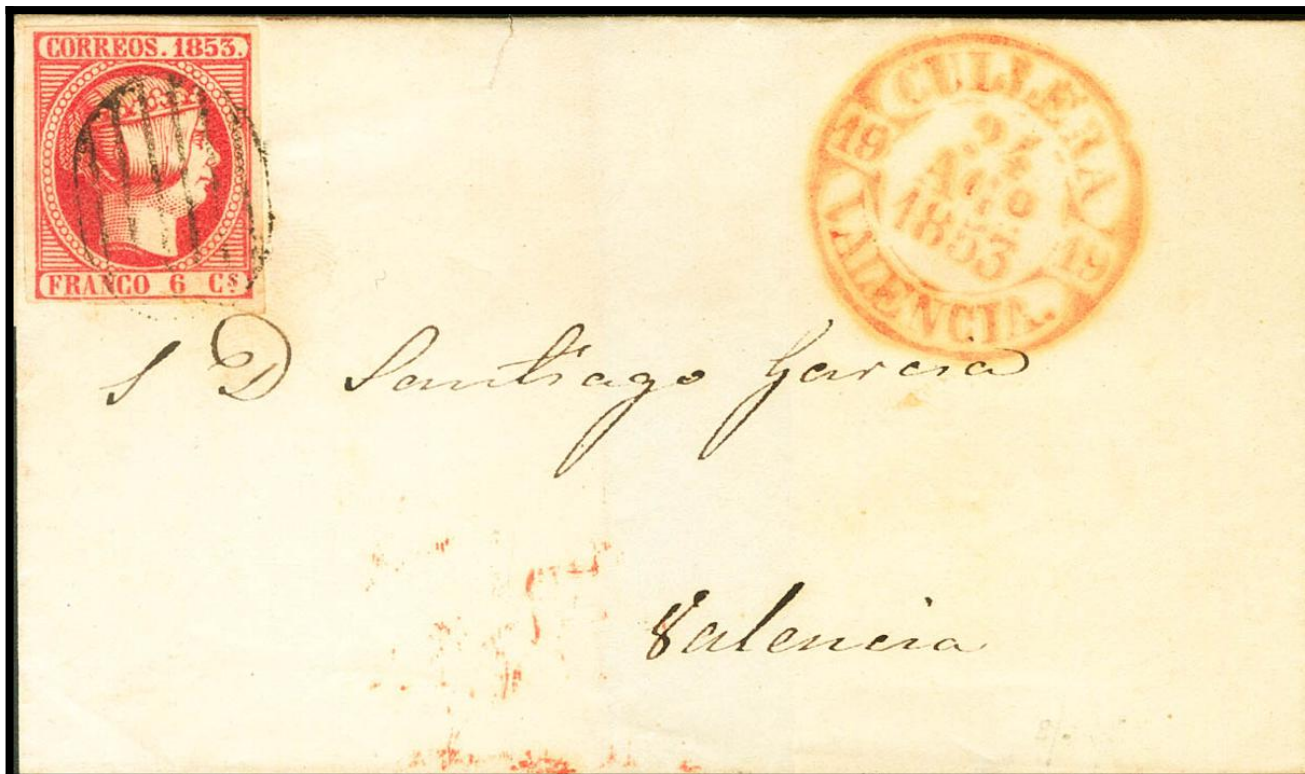 CORREOS. 1853.
FRANCO 6 Cs
CULLERA
19 19
24
AGO
1853
VALENCIA.
S D Santiago Garcia
Valencia